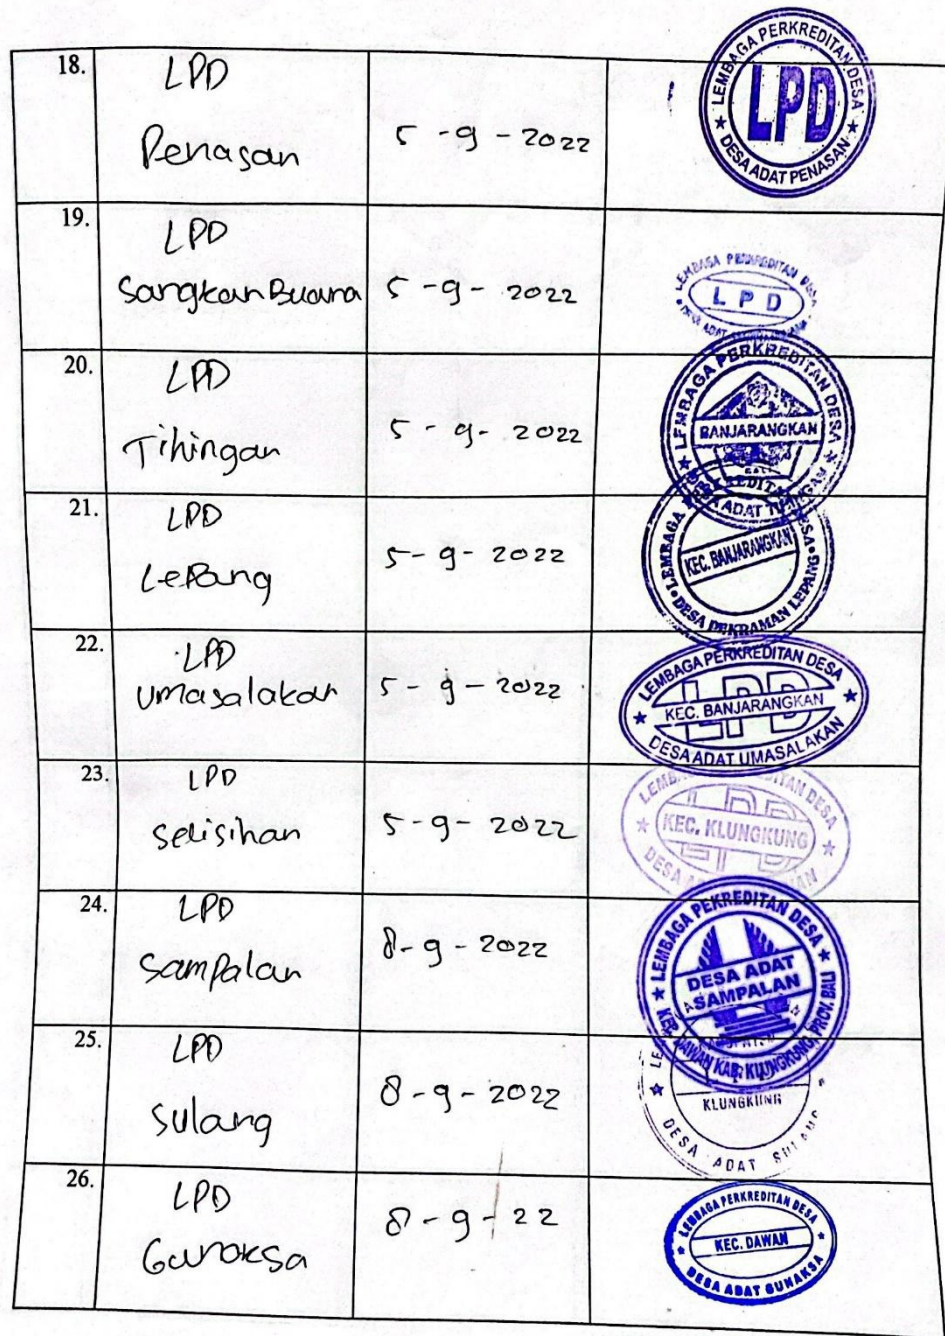 18.
LPD
Penasan
5 - 9 - 2022
LEMBAGA PERKREDITAN DESA
LPD
★ DESA ADAT PENASAN ★
19.
LPD
Sangkan Buana
5 - 9 - 2022
LEMBAGA PERKREDITAN DESA
LPD
DESA ADAT
20.
LPD
Tihingan
5 - 9 - 2022
★ LEMBAGA PERKREDITAN DESA ★
BANJARANGKAN
ADAT TIHINGAN
21.
LPD
Lepang
5 - 9 - 2022
LEMBAGA
KEC. BANJARANGKAN
DESA PEKRAMAN LEPANG
22.
LPD
Umasalakan
5 - 9 - 2022
LEMBAGA PERKREDITAN DESA
LPD
★ KEC. BANJARANGKAN ★
DESA ADAT UMASALAKAN
23.
LPD
Selisihan
5 - 9 - 2022
DESA
LPD
★ KEC. KLUNGKUNG ★
DESA
24.
LPD
Sampalan
8 - 9 - 2022
★ LEMBAGA PEKREDITAN DESA ★
DESA ADAT
SAMPALAN
KEC. DAWAN KAB. KLUNGKUNG PROV. BALI
25.
LPD
Sulang
8 - 9 - 2022
KLUNGKUNG
DESA ADAT SULANG
26.
LPD
Gunaksa
8 - 9 - 22
LEMBAGA PERKREDITAN DESA
★ KEC. DAWAN ★
DESA ADAT GUNAKSA